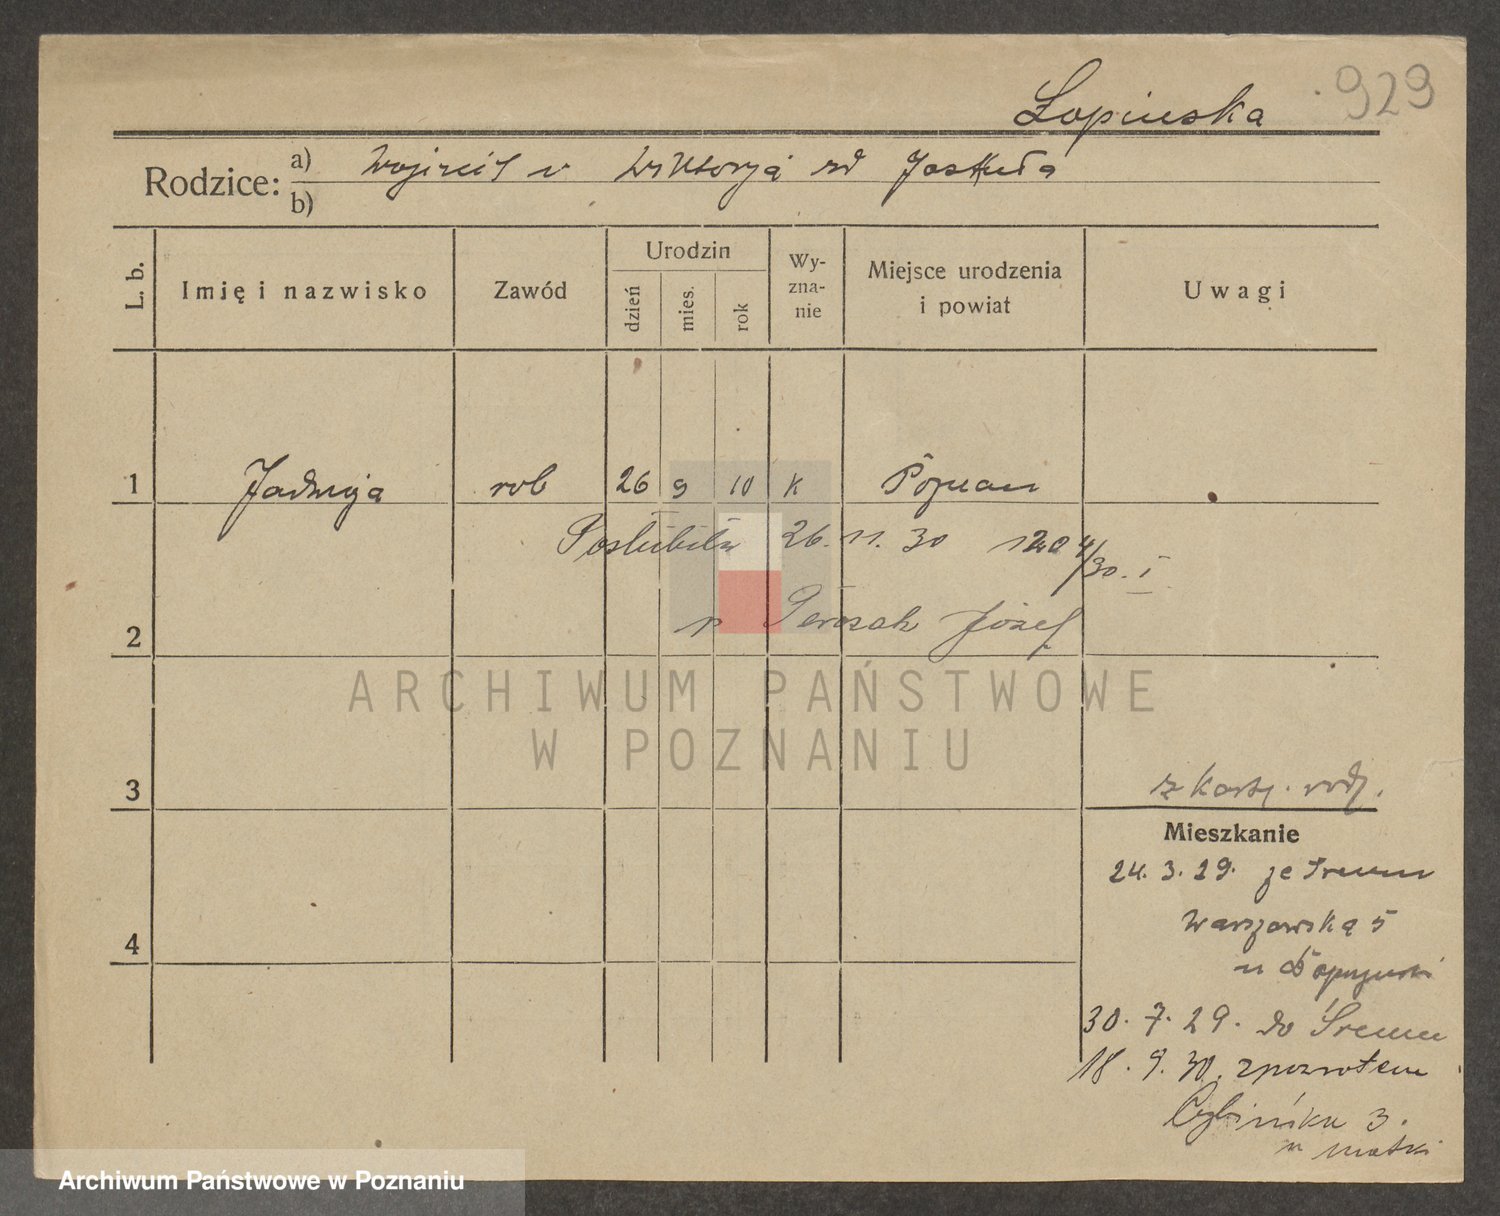 Łopinska 929
Rodzice: a) Wojciech i Wiktorja rd Jaskuła
b)
L. b. Imię i nazwisko Zawód Urodzin dzień mies. rok Wyznanie Miejsce urodzenia i powiat Uwagi
1 Jadwiga rob 26 9 10 k Poznań
Poślubiła 26. 11. 30 1204/30. I
2 Józef
ARCHIWUM PAŃSTWOWE
W POZNANIU
3 z kart. rodz.
Mieszkanie
24. 3. 29. ze Śremu
Warszawska 5
4 u
30. 7. 29. do Śremu
18. 9. 30. zpowrotem
Cybińska 3.
u matki
Archiwum Państwowe w Poznaniu